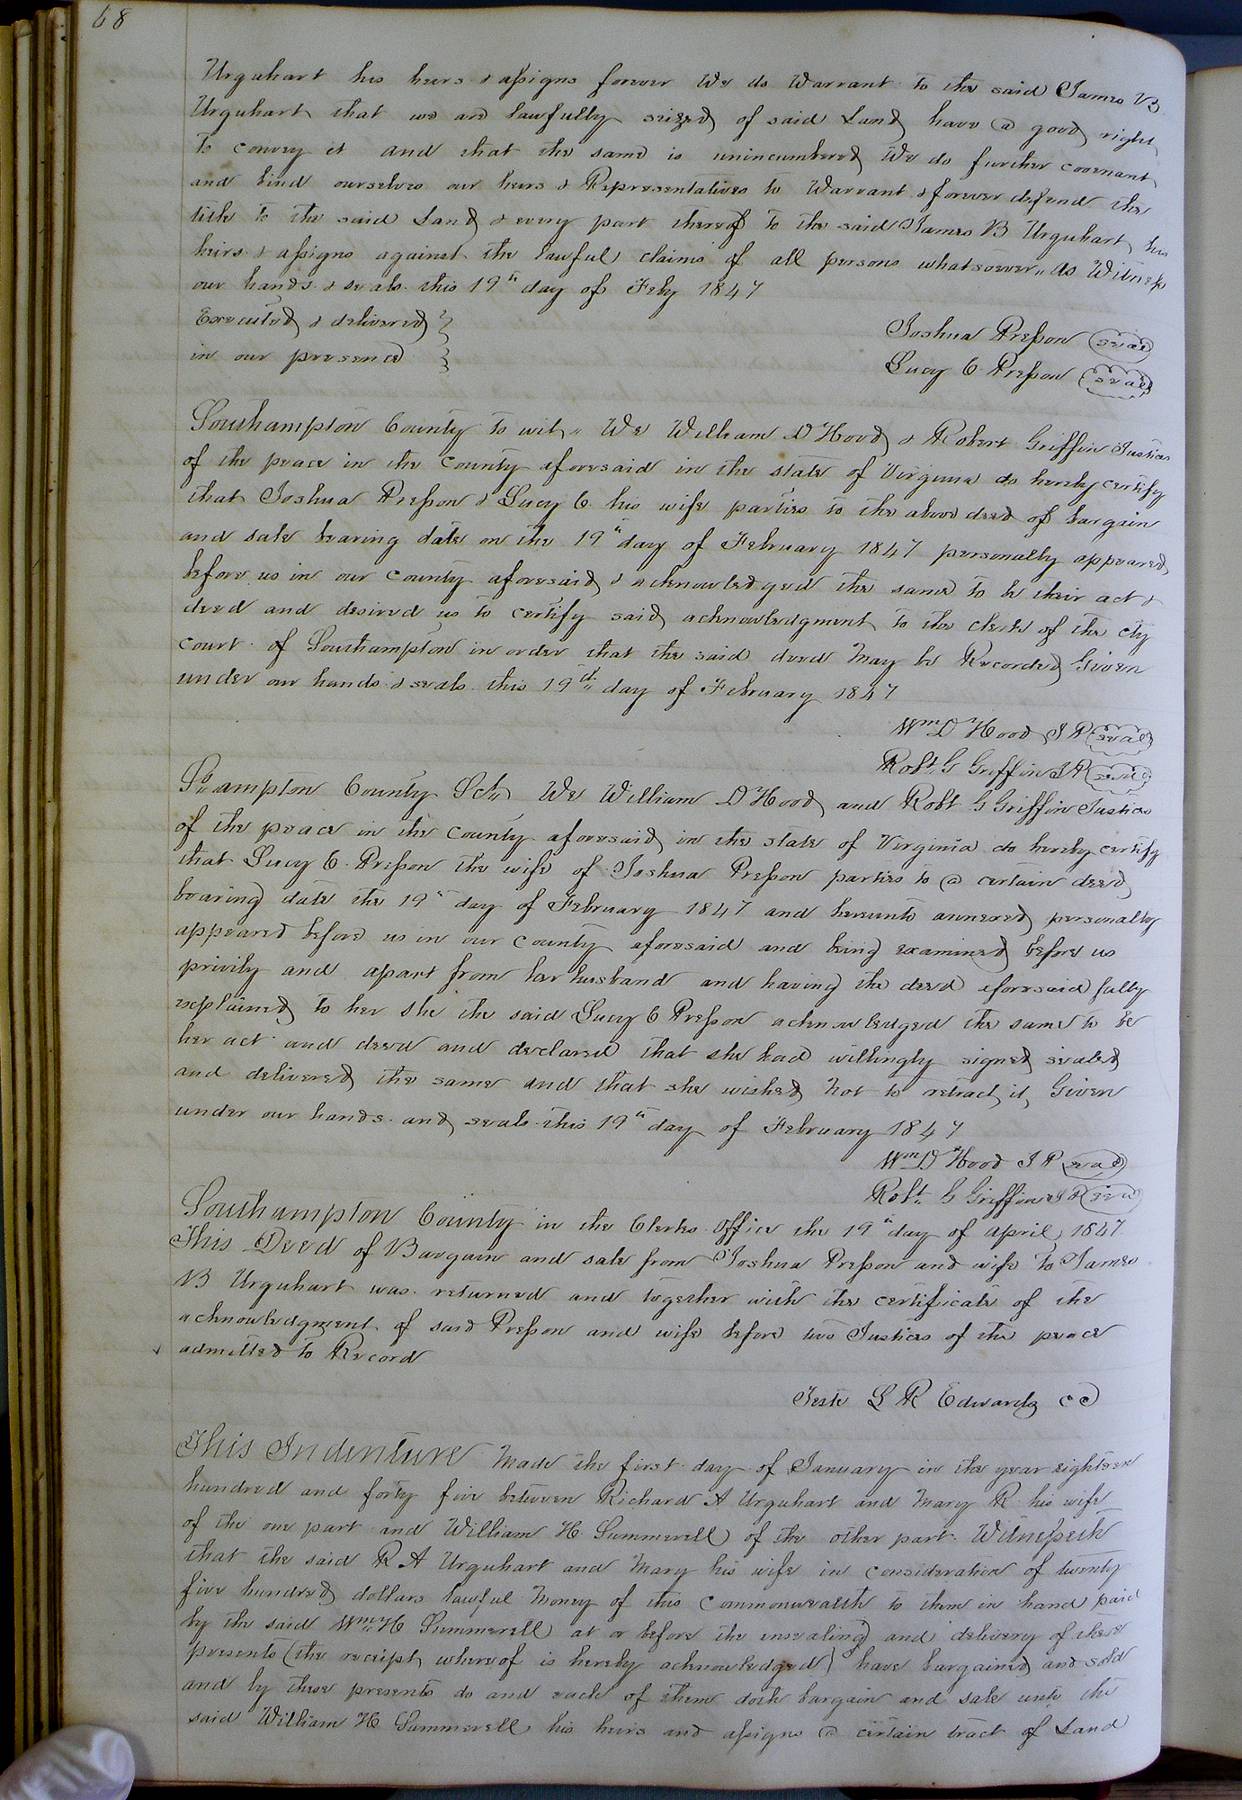 68
Urquhart his heirs & assigns forever We do Warrant to the said James B
Urquhart that we are lawfully seized of said Land have a good right
to convey it and that the same is unincumbered We do further covenant
and bind ourselves our heirs & Representatives to Warrant & forever defend the
title to the said Land & every part thereof to the said James B Urquhart his
heirs & assigns against the lawful claims of all persons whatsoever As Witness
our hands & seals this 19th day of Feby 1847
Executed & delivered
in our presence
Joshua Presson seal
Lucy C Presson seal
Southampton County to wit, We William D Hood & Robert Griffin Justices
of the peace in the County aforesaid in the state of Virginia do hereby certify
that Joshua Presson & Lucy C. his wife parties to the above deed of bargain
and sale bearing date on the 19th day of February 1847 personally appeared
before us in our County aforesaid & acknowledged the same to be their act &
deed and desired us to certify said acknowledgment to the clerk of the cty
court of Southampton in order that the said deed May be Recorded Given
under our hands & seals this 19th day of February 1847
Wm D Hood J P seal
Robt G Griffin J P seal
So ampton County Sct We William D Hood and Robt G Griffin Justices
of the peace in the County aforesaid in the state of Virginia do hereby certify
that Lucy C. Presson the wife of Joshua Presson parties to a certain deed
bearing date the 19th day of February 1847 and hereunto annexed personally
appeared before us in our County aforesaid and being examined before us
privily and apart from her husband and having the deed aforesaid fully
explained to her she the said Lucy C Presson acknowledged the same to be
her act and deed and declared that she had willingly signed sealed
and delivered the same and that she wished Not to retract it, Given
under our hands and seals this 19th day of February 1847
Wm D Hood J P seal
Robt G Griffin J P seal
Southampton County in the Clerks Office the 19th day of April 1847
This Deed of Bargain and sale from Joshua Presson and wife To James
B Urquhart was returned and together with the certificate of the
acknowledgment of said Presson and wife before two Justices of the peace
admitted to Record
Teste L R Edwards C C
This Indenture Made the first day of January in the year eighteen
hundred and forty five between Richard A Urquhart and Mary R his wife
of the one part and William H Summerell of the other part Witnesseth
that the said R A Urquhart and Mary his wife in consideration of twenty
five hundred dollars lawful Money of this Commonwealth to them in hand paid
by the said Wm H Summerell at or before the ensealing and delivery of these
presents (the receipt whereof is hereby acknowledged) have bargained and sold
and by these presents do and each of them doth bargain and sale unto the
said William H Summerell his heirs and assigns a certain tract of Land